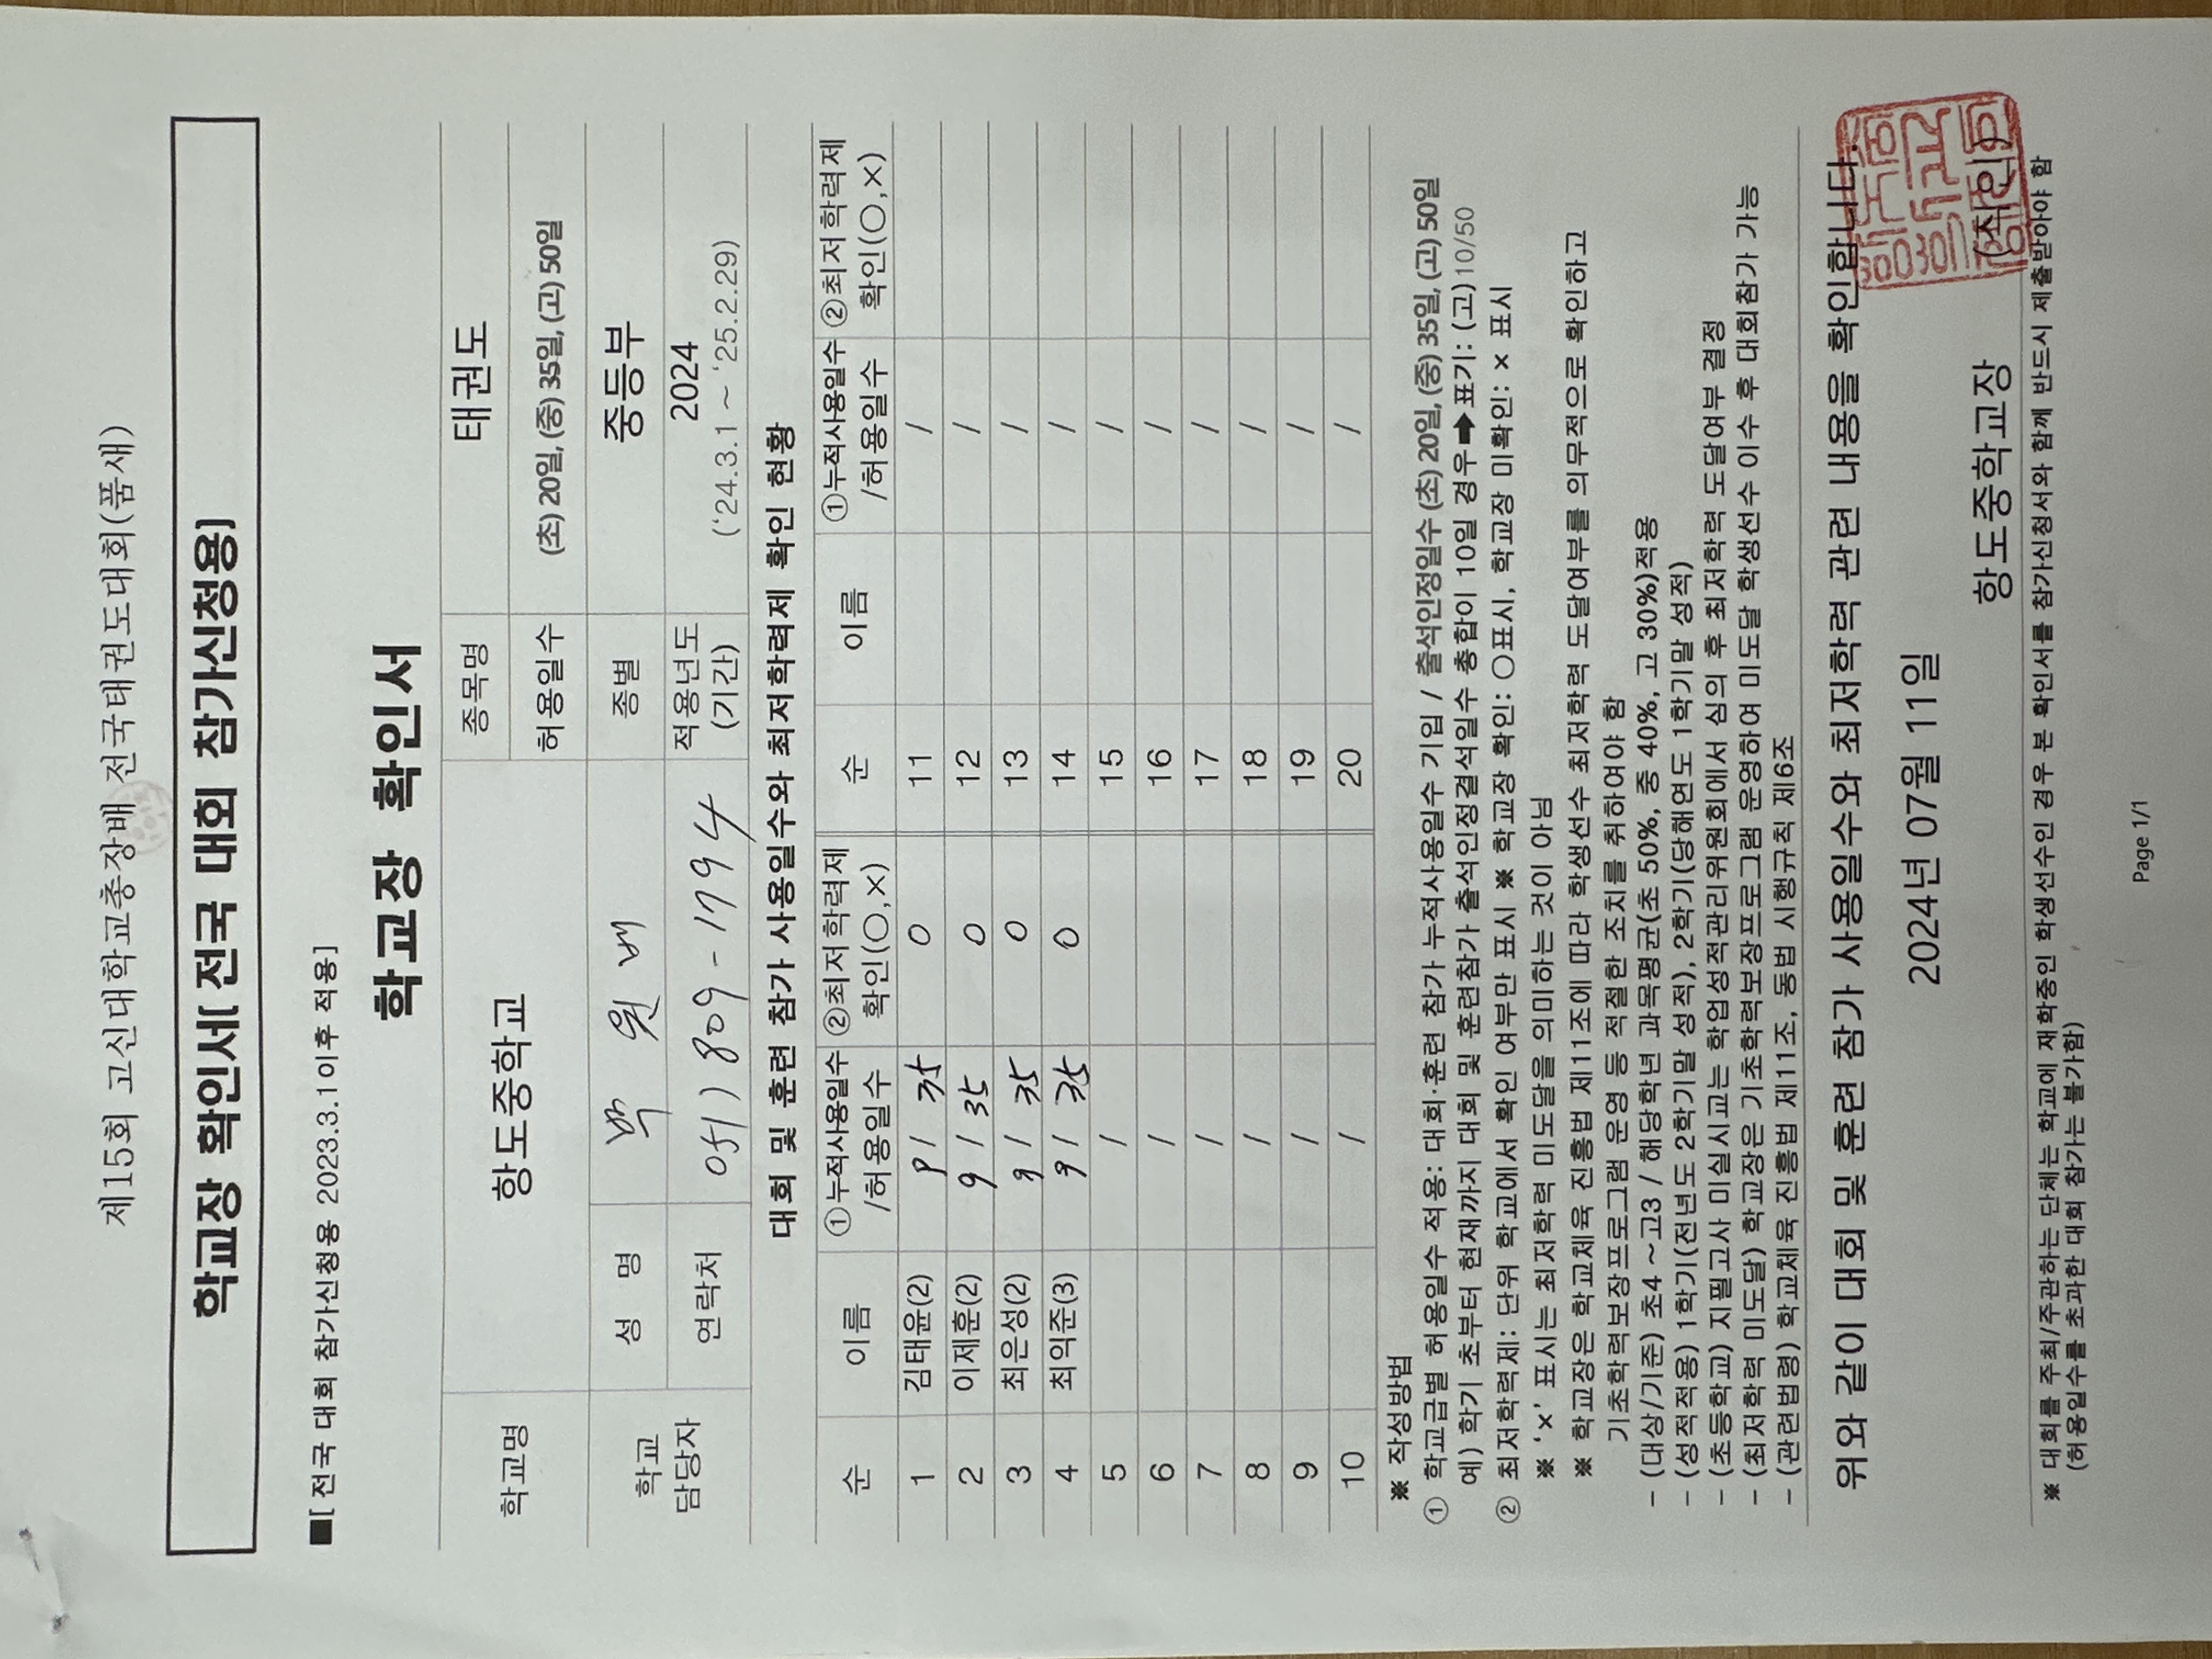 제15회 고신대학교총장배 전국태권도대회(품새)
학교장 확인서[ 전국 대회 참가신청용]
■[ 전국 대회 참가신청용 2023.3.1이후 적용]
학교장 확인서
학교명 항도중학교 종목명 태권도
허용일수 (초) 20일, (중) 35일, (고) 50일
학교 담당자 성 명 박 원 배 종별 중등부
연락처 051) 809-1794 적용년도 (기간) 2024
('24.3.1 ~ '25.2.29)
대회 및 훈련 참가 사용일수와 최저학력제 확인 현황
순 이름 ①누적사용일수 /허용일수 ②최저학력제 확인(○,×) 순 이름 ①누적사용일수 /허용일수 ②최저학력제 확인(○,×)
1 김태윤(2) 9 / 35 ○ 11 /
2 이제훈(2) 9 / 35 ○ 12 /
3 최은성(2) 9 / 35 ○ 13 /
4 최익준(3) 9 / 35 ○ 14 /
5 / 15 /
6 / 16 /
7 / 17 /
8 / 18 /
9 / 19 /
10 / 20 /
※ 작성방법
① 학교급별 허용일수 적용: 대회·훈련 참가 누적사용일수 기입 / 출석인정일수 (초) 20일, (중) 35일, (고) 50일
예) 학기 초부터 현재까지 대회 및 훈련참가 출석인정결석일수 총합이 10일 경우 ➡표기: (고) 10/50
② 최저학력제: 단위 학교에서 확인 여부만 표시 ※ 학교장 확인: ○표시, 학교장 미확인: × 표시
※ '×' 표시는 최저학력 미도달을 의미하는 것이 아님
※ 학교장은 학교체육 진흥법 제11조에 따라 학생선수 최저학력 도달여부를 의무적으로 확인하고
기초학력보장프로그램 운영 등 적절한 조치를 취하여야 함
- (대상/기준) 초4 ~고3 / 해당학년 과목평균(초 50%, 중 40%, 고 30%)적용
- (성적적용) 1학기(전년도 2학기말 성적), 2학기(당해연도 1학기말 성적)
- (초등학교) 지필고사 미실시교는 학업성적관리위원회에서 심의 후 최저학력 도달여부 결정
- (최저학력 미도달) 학교장은 기초학력보장프로그램 운영하여 미도달 학생선수 이수 후 대회참가 가능
- (관련법령) 학교체육 진흥법 제11조, 동법 시행규칙 제6조
위와 같이 대회 및 훈련 참가 사용일수와 최저학력 관련 내용을 확인합니다.
2024년 07월 11일
항도중학교장 (직인)
※ 대회를 주최/주관하는 단체는 학교에 재학중인 학생선수인 경우 본 확인서를 참가신청서와 함께 반드시 제출받아야 함
(허용일수를 초과한 대회 참가는 불가함)
Page 1/1